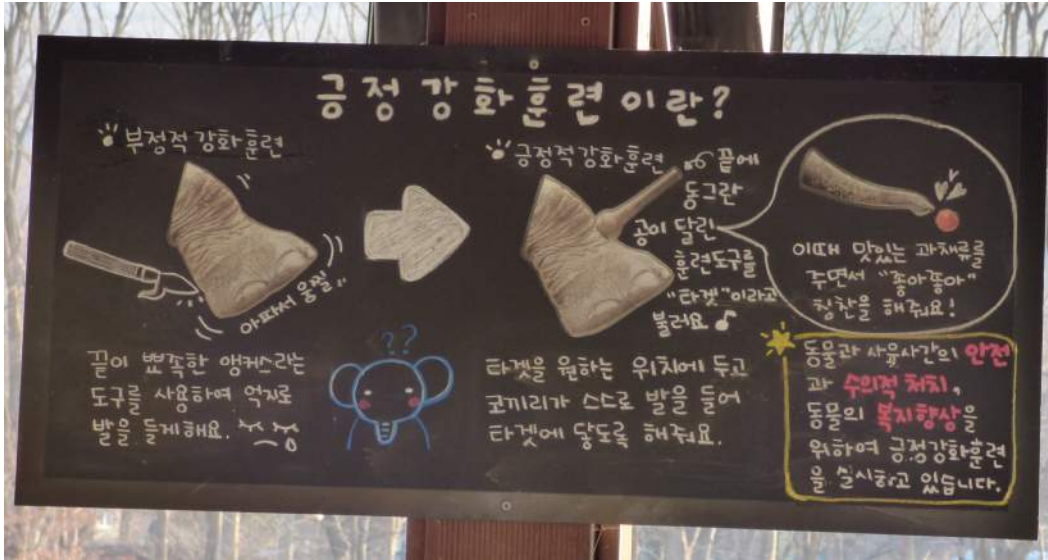 긍정강화훈련이란?
부정적강화훈련
아파서 움찔!!
끝이 뾰족한 앵커스라는
도구를 사용하여 억지로
발을 들게해요.
??
긍정적강화훈련
끝에
동그란
공이 달린
훈련도구를
"타겟"이라고
불러요♪
타겟을 원하는 위치에 두고
코끼리가 스스로 발을 들어
타겟에 닿도록 해줘요.
이때 맛있는 과채류를
주면서 "좋아좋아"
칭찬을 해줘요!
동물과 사육사간의 안전
과 수의적 처치,
동물의 복지향상을
위하여 긍정강화훈련
을 실시하고 있습니다.